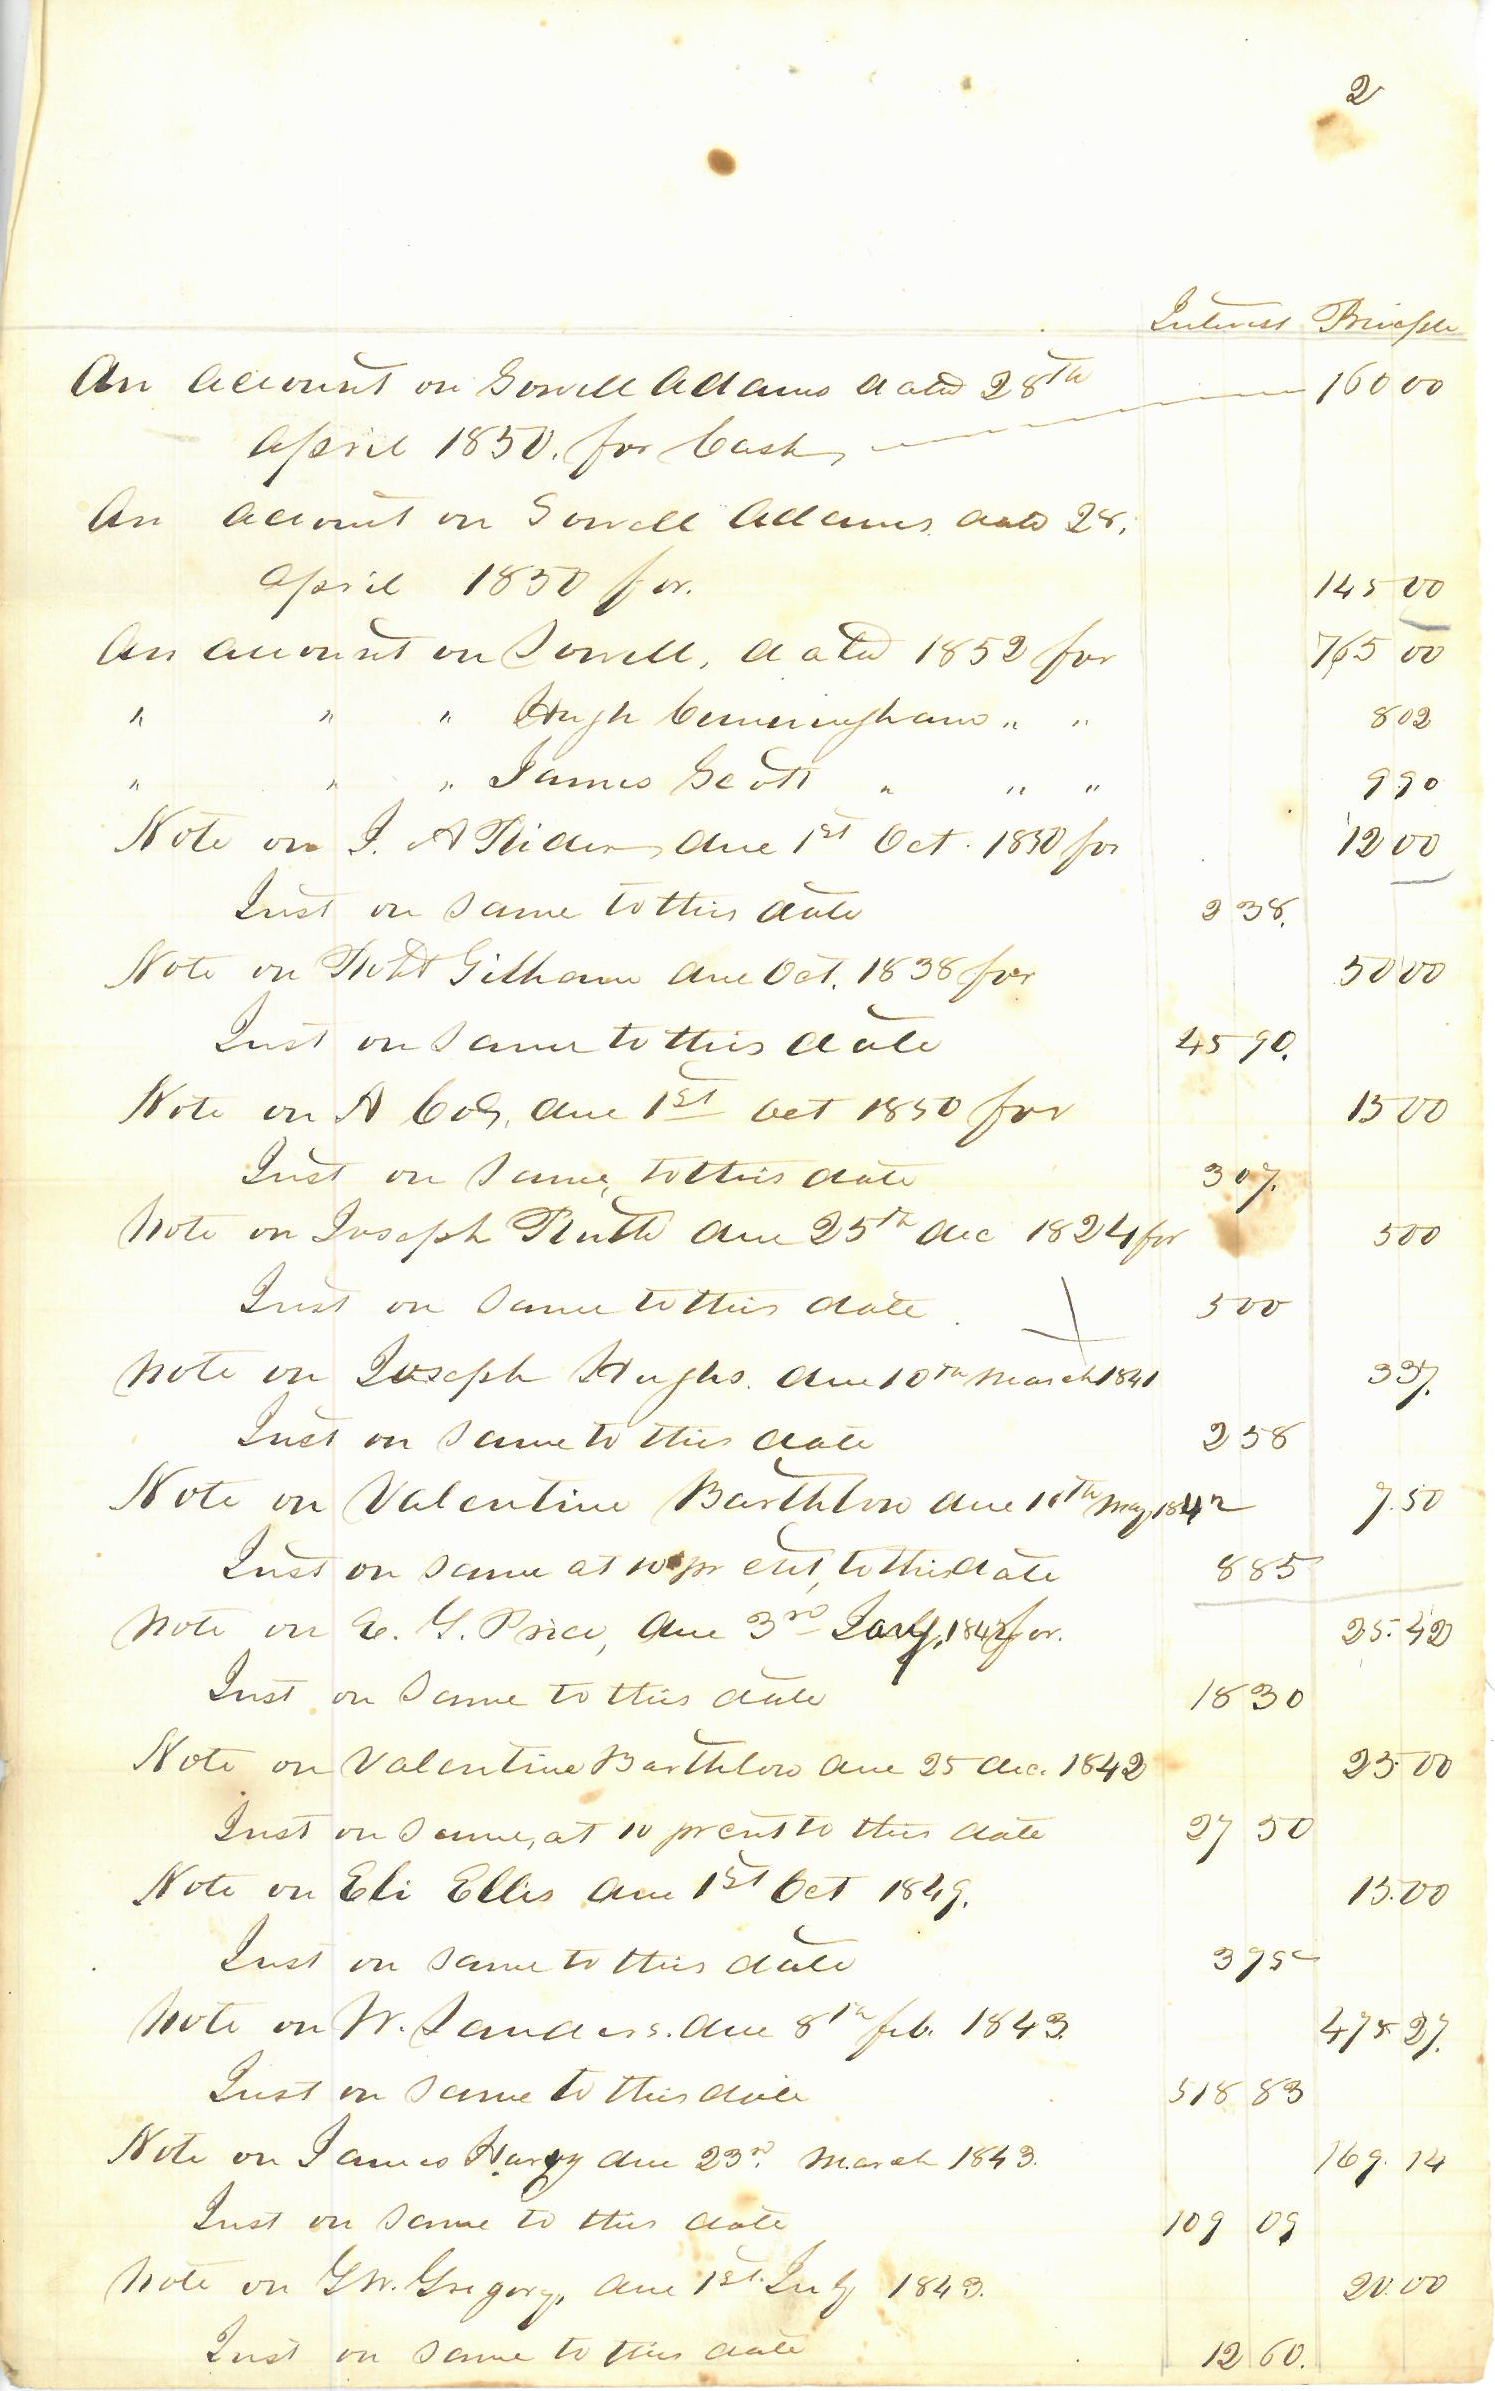 2
Interest Principle
An account on Sowell Adams dated 28th 160 00
april 1850. for Cash,
An account on Sowell Adams date 28.
april 1850 for. 145 00
An account on Sowell, dated 1852 for 765 00
" " " Hugh Cunningham " " 8 02
" " " James Scott " " " 9 90
Note on J. A Rider, due 1st Oct. 1850 for 12 00
Inst on same to this date 2 38.
Note on Robt Gilham due Oct. 1838 for 50 00
Inst on same to this date 45 90.
Note on A Cox, due 1st oct 1850 for 15 00
Inst on same, to this date 3 07.
Note on Joseph due 25th dec 1824 for 5 00
Inst on same to this date 5 00
Note on Joseph Hughs. due 10th March 1841 3 37.
Inst on same to this date 2 58
Note on Valentine Barthlow due 10th May, 1842 7.50
Inst on same at 10 pr cnt, to this date 8 85
Note on E. G. Price, due 3rd Jany, 1842 for. 25.42
Inst on same to this date 18 30
Note on Valentine Barthlow due 25 dec. 1842 25.00
Inst on same, at 10 pr cnt to this date 27 50
Note on Eli Ellis due 1st Oct 1849. 15.00
Inst on same to this date 3 95
Note on W. Sanders. due 8th feb. 1843. 478 27.
Inst on same to this date 518 83
Note on James due 23rd. March 1843. 169. 14
Inst on same to this date 109 09
Note on GW. Gregory, due 1st. July 1843. 20.00
Inst on same to this date 12 60.